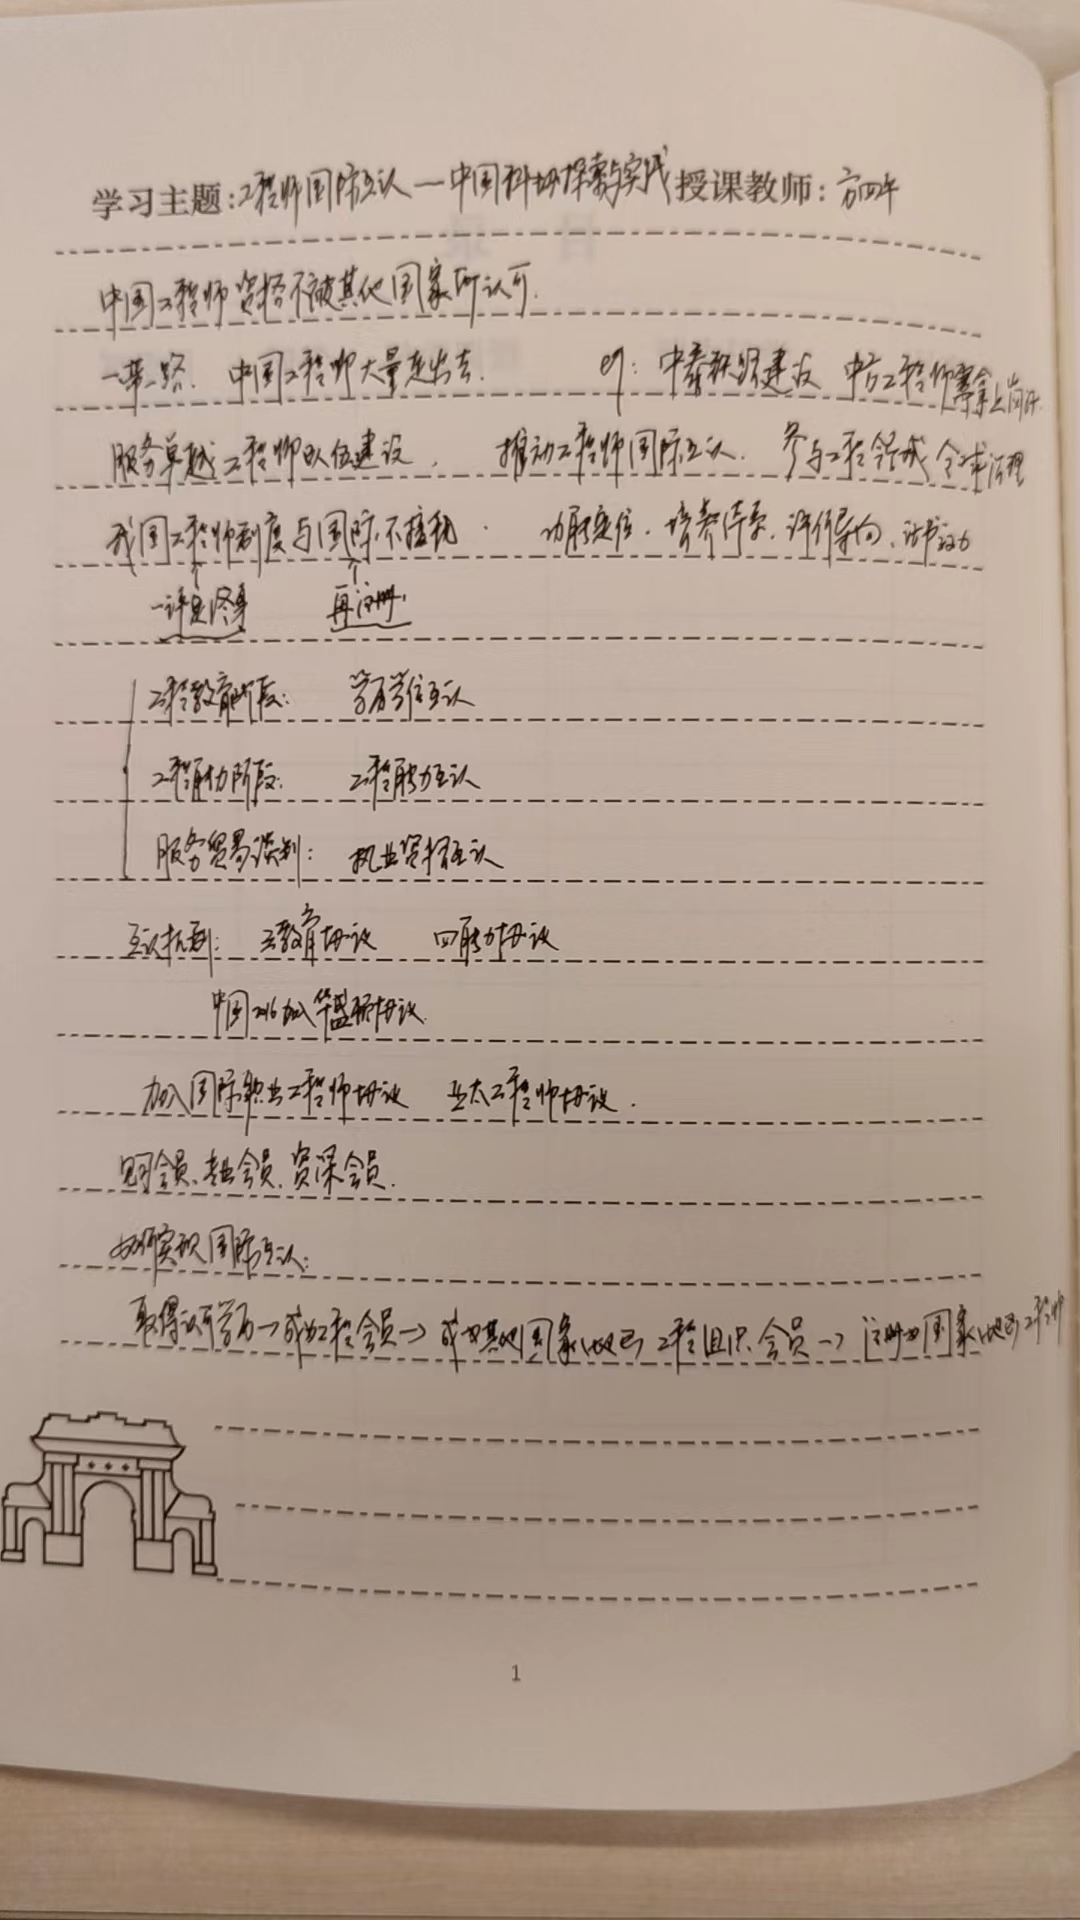 学习主题：工程师国际互认—中国科协探索与实践 授课教师：方四平
中国工程师资格不被其他国家所认可.
一带一路. 中国工程师大量走出去. eg: 中泰铁路建设 中方工程师需拿上岗证.
服务卓越工程师队伍建设. 推动工程师国际互认. 参与工程领域全球治理
我国工程师制度与国际不接轨. 功能定位. 培养体系. 评价导向.
一评定终身 再注册.
工程教育阶段: 学历学位互认
工程能力阶段: 工程能力互认
服务贸易谈判: 执业资格互认
互认机制: 三教育协议 四能力协议
中国2016加入华盛顿协议.
加入国际职业工程师协议 亚太工程师协议.
见习会员、专业会员、资深会员.
如何实现国际互认:
取得认可学历→成为工程会员→成为其他国家(地区)工程组织会员→注册为国家(地区)工程师
1